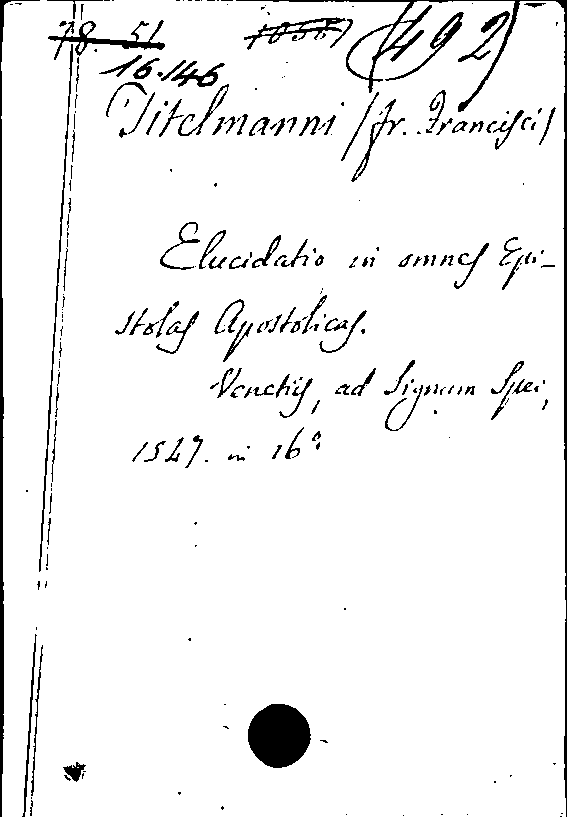 78. 51 (492)
16.146
Titelmanni /fr. Francisci/
Elucidatio in omnes Epi-
stolas Apostolicas.
Venetiis, ad Signum Spei,
1547. in 16°